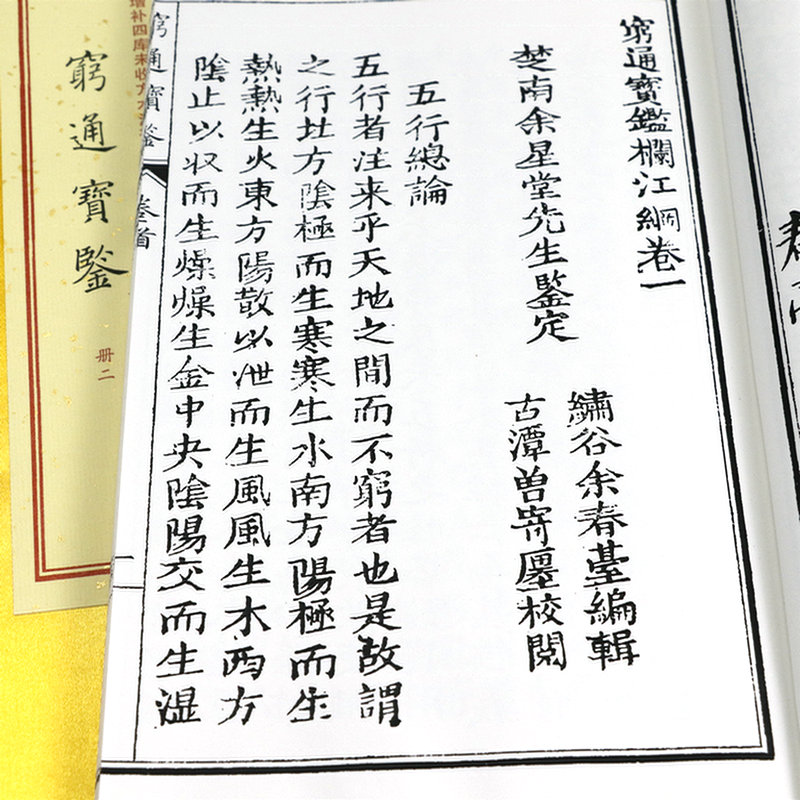 窮通寶鑑欄江綱卷一
楚南余星堂先生鑒定
繡谷余春臺編輯
古潭曾寄㕓校閱
五行總論
五行者注来乎天地之間而不窮者也是故謂
之行北方陰極而生寒寒生水南方陽極而生
熱熱生火東方陽散以泄而生風風生木西方
陰止以収而生燥燥生金中央陰陽交而生湿
窮通寶鑒
卷首
增补四库未收方
窮通寶鑒
册二